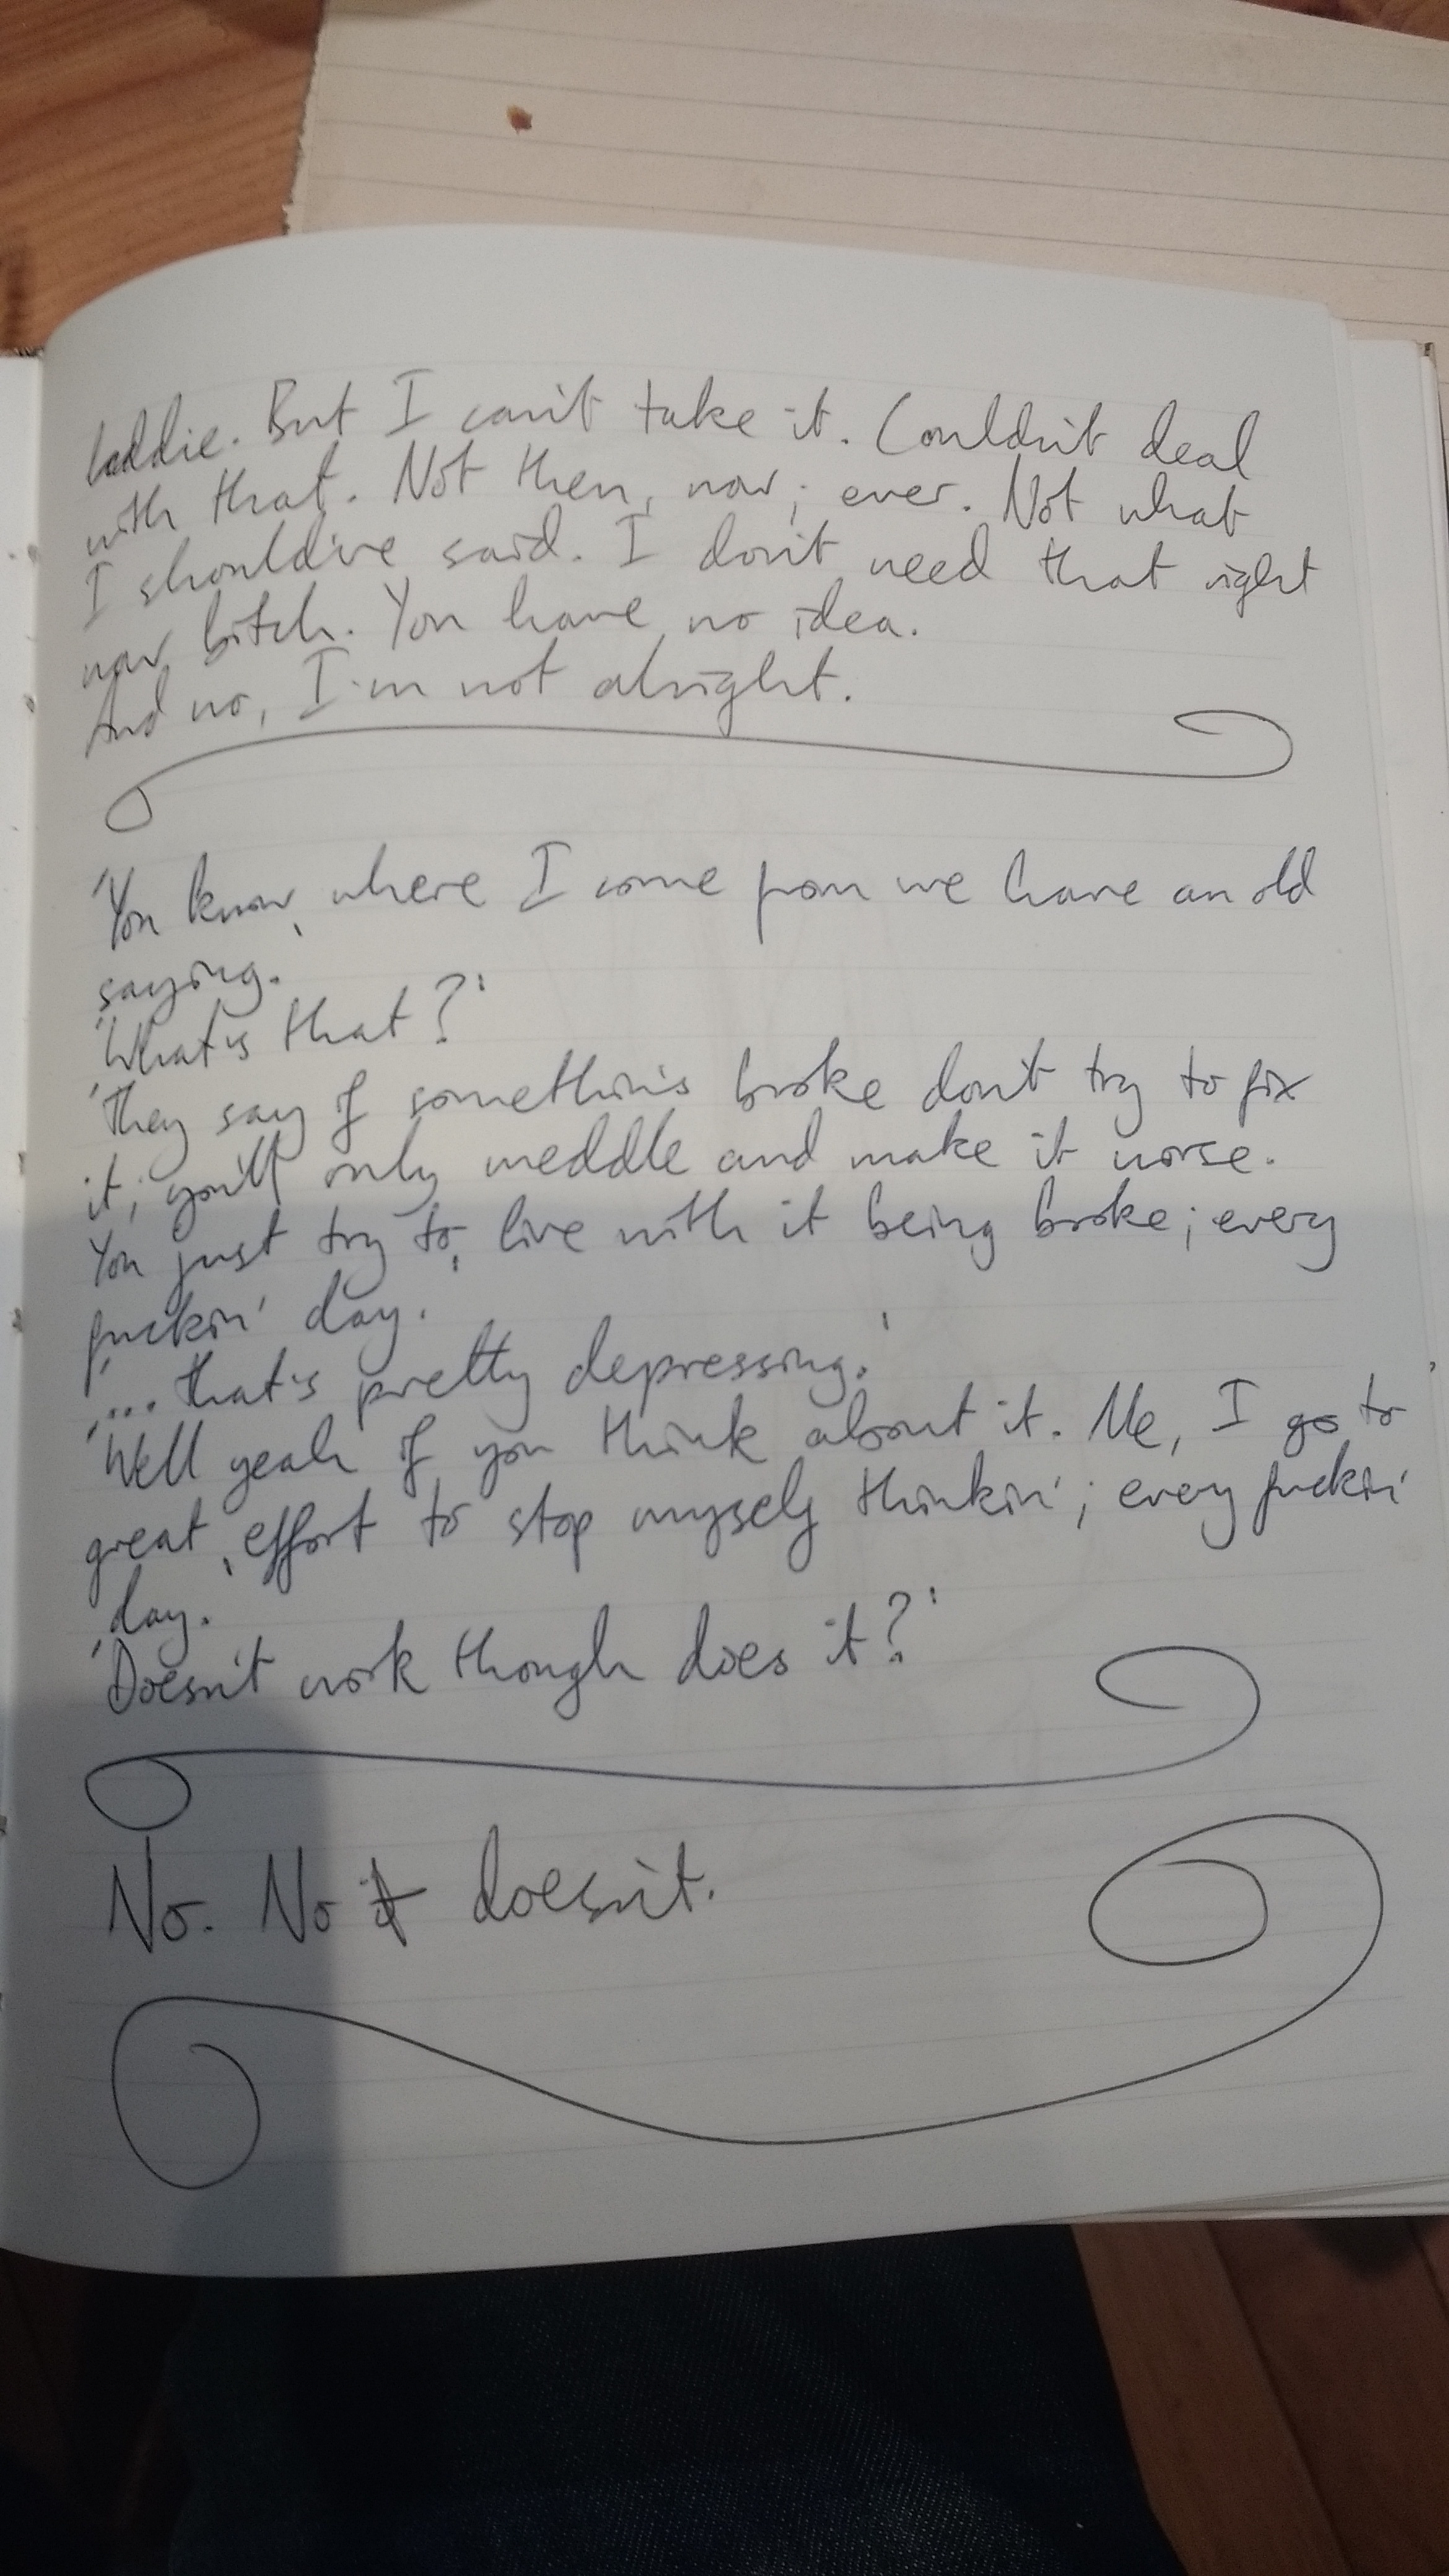 laddie. But I can't take it. Couldn't deal
with that. Not then, now; ever. Not what
I should've said. I don't need that right
now bitch. You have no idea.
And no, I'm not alright.
'You know, where I come from we have an old
saying.'
'What's that?'
'They say if something's broke don't try to fix
it; you'll only meddle and make it worse.
You just try to, live with it being broke; every
fuckin' day.'
'... that's pretty depressing.'
'Well yeah if you think about it. Me, I go to
great effort to stop myself thinkin'; every fuckin'
day.'
'Doesn't work though does it?'
No. No it doesn't.